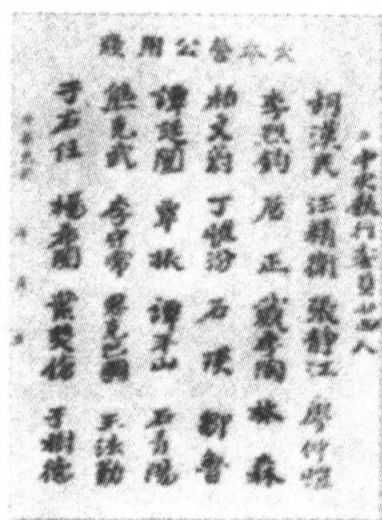 大本營公用牋
中央執行委員廿四人
胡漢民 汪精衛 張靜江 廖仲愷
李烈鈞 居正 戴季陶 林森
柏文蔚 丁惟汾 石瑛 鄒魯
譚延闓 覃振 譚平山 石青陽
熊克武 李守常 恩克巴圖 王法勤
于右任 楊希閔 葉楚傖 于樹德
中華民國 年 月 日